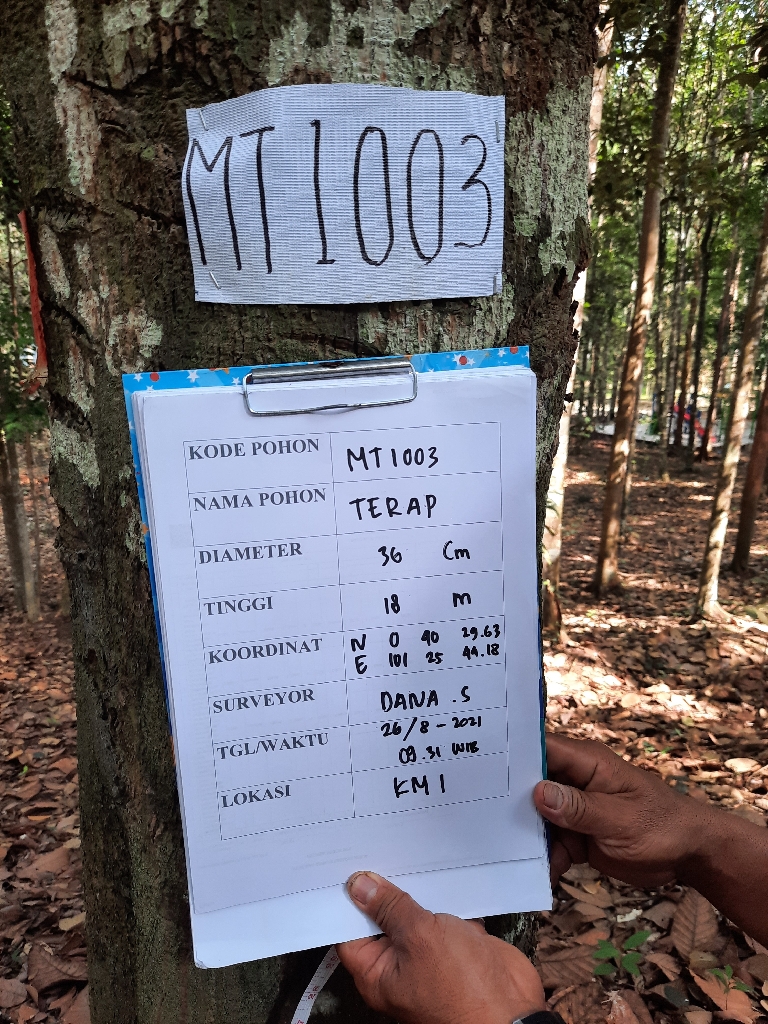 MT1003
KODE POHON MT1003
NAMA POHON TERAP
DIAMETER 36 Cm
TINGGI 18 m
KOORDINAT N 0 40 29.63
E 101 25 44.18
SURVEYOR DANA .S
TGL/WAKTU 26/8-2021
09.31 WIB
LOKASI KM 1